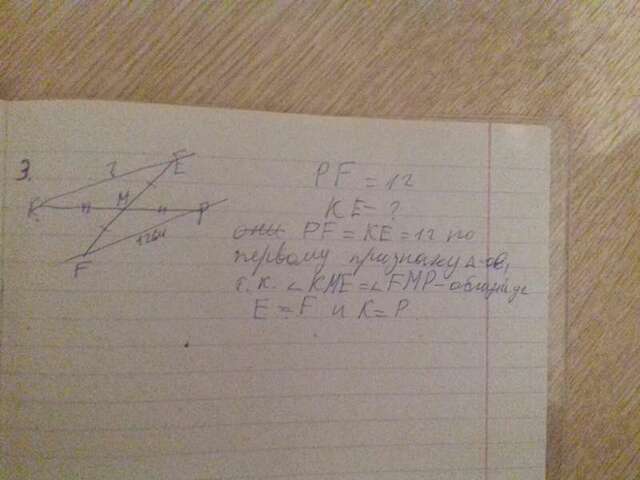 3.
?
E
K
M
P
12см
F
PF = 12
KE - ?
PF = KE = 12 по
первому признаку Δ-ов,
т.к. ∠KME = ∠FMP -
E = F и K = P